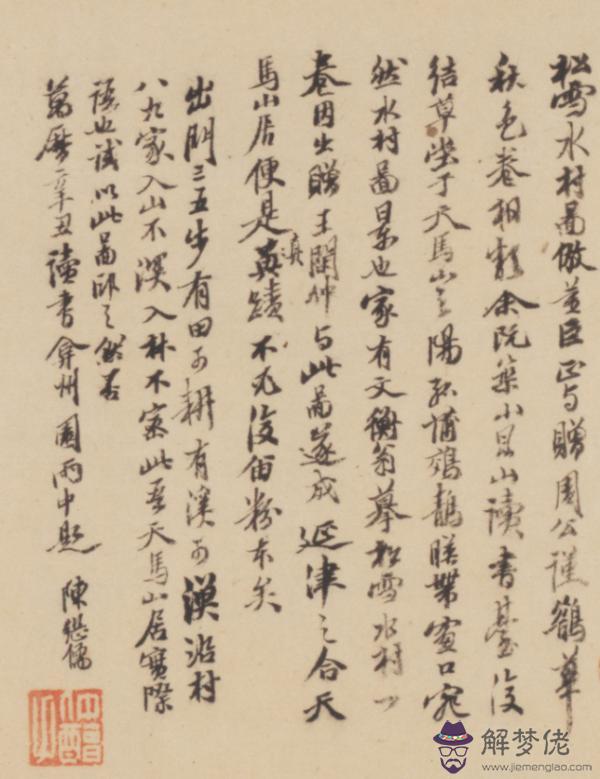 松雪水村圖倣董巨正与贈周公謹鵲華
秋色卷相類余既築小昆山讀書臺後
結草堂于天馬山之陽菰蒲鵝鸛映帶窗口宛
然水村圖景也家有文衡翁摹松雪水村一
卷因出贈王閑仲与此圖遂成延津之合天
馬山居便是真蹟不凡復留粉本矣
出門三五步有田可耕有溪可漁沿村
八九家入山不深入林不密此吾天馬山居實際
語也試以此圖印之然否
萬曆辛丑讀書弇州園雨中題 陳繼儒
解梦佬
www.jiemenglao.com